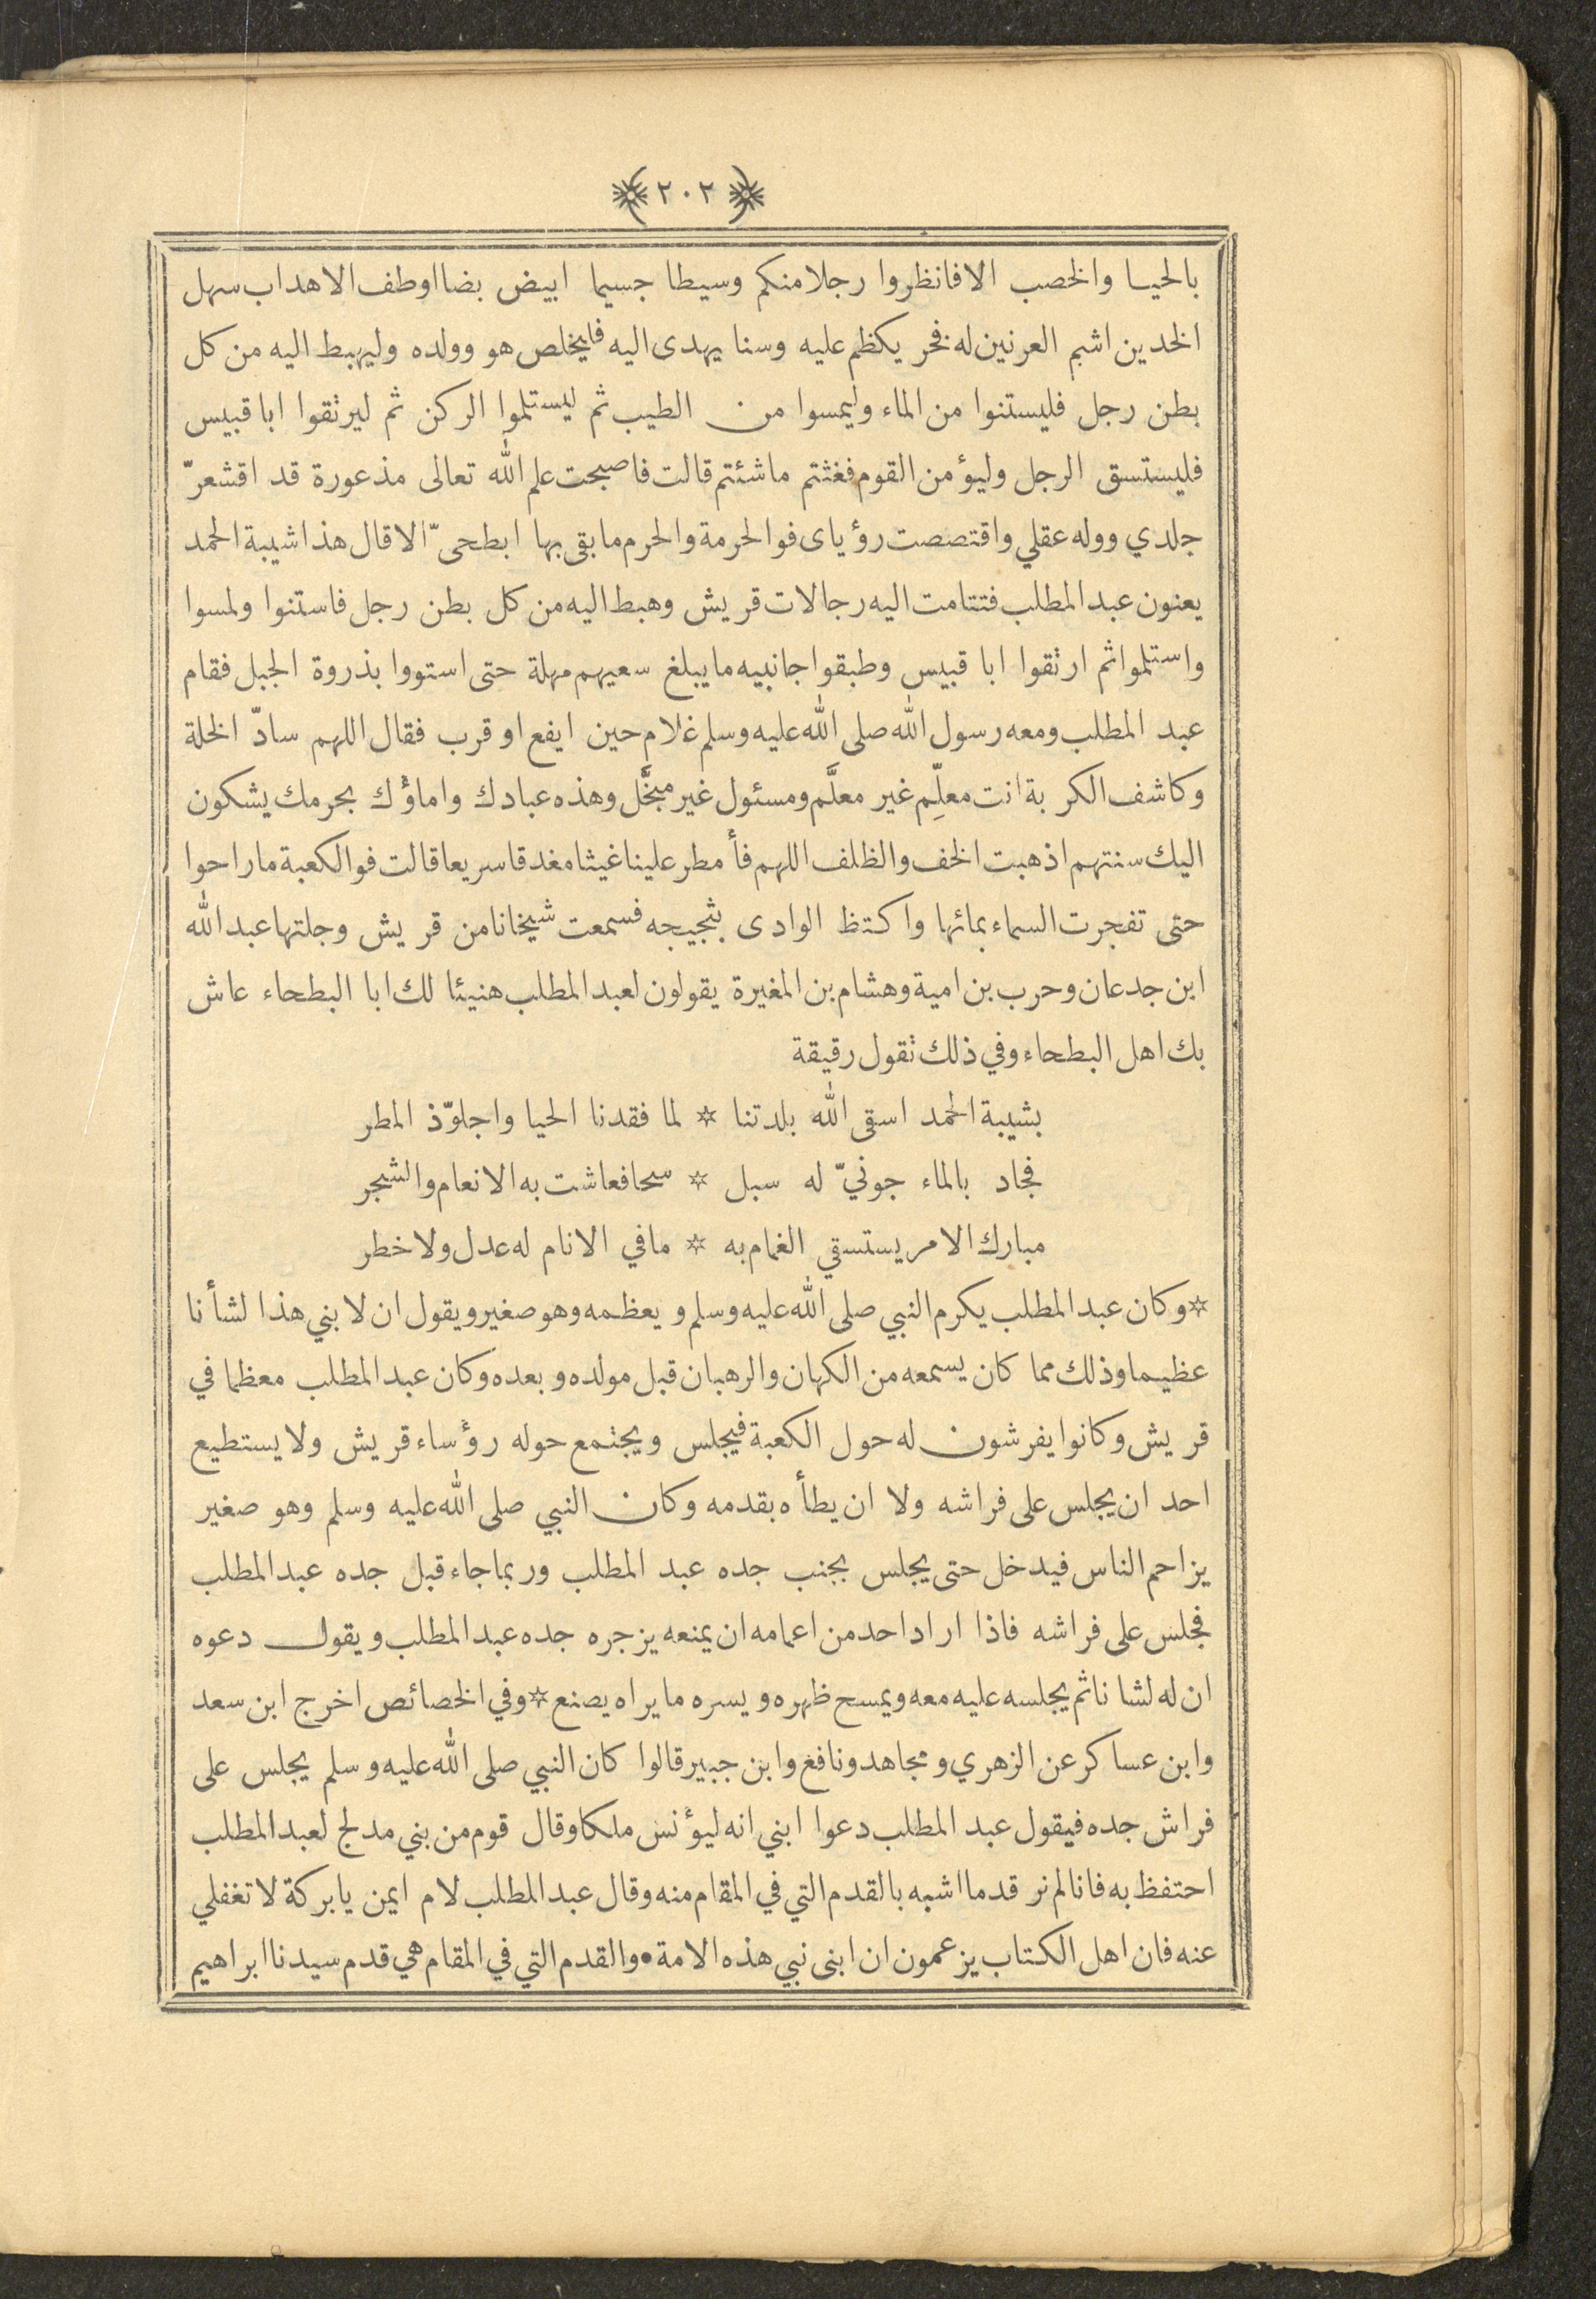 ٢٠٢
بالحيا والخصب الا فانظروا رجلا منكم وسيطا جسيما ابيض بضا اوطف الاهداب سهل
الخدين اشم العرنين له فخر يكظم عليه وسنا يهدى اليه فليخلص هو وولده وليهبط اليه من كل
بطن رجل فليستنوا من الماء وليمسوا من الطيب ثم ليستلموا الركن ثم ليرتقوا ابا قبيس
فليستسق الرجل وليؤمن القوم فغثتم ما شئتم قالت فاصبحت علم الله تعالى مذعورة قد اقشعرّ
جلدي ووله عقلي واقتصصت رؤياى فوالحرمة والحرم ما بقى بها ابطحىّ الا قال هذا شيبة الحمد
يعنون عبد المطلب فتتامت اليه رجالات قريش وهبط اليه من كل بطن رجل فاستنوا ولمسوا
واستلموا ثم ارتقوا ابا قبيس وطبقوا جانبيه ما يبلغ سعيهم مهلة حتى استووا بذروة الجبل فقام
عبد المطلب ومعه رسول الله صلى الله عليه وسلم غلام حين ايفع او قرب فقال اللهم سادّ الخلة
وكاشف الكربة انت معلِّم غير معلَّم ومسئول غير مبخَّل وهذه عبادك واماؤك بحرمك يشكون
اليك سنتهم اذهبت الخف والظلف اللهم فأمطر علينا غيثا مغدقا سريعا قالت فوالكعبة ما راحوا
حتى تفجرت السماء بمائها واكتظ الوادى بثجيجه فسمعت شيخانا من قريش وجلتها عبد الله
ابن جدعان وحرب بن امية وهشام بن المغيرة يقولون لعبد المطلب هنيئا لك ابا البطحاء عاش
بك اهل البطحاء وفي ذلك تقول رقيقة
بشيبة الحمد اسقى الله بلدتنا ☆ لما فقدنا الحيا واجلوّذ المطر
فجاد بالماء جونيّ له سبل ☆ سحا فعاشت به الانعام والشجر
مبارك الامر يستسقي الغمام به ☆ ما في الانام له عدل ولا خطر
☆ وكان عبد المطلب يكرم النبي صلى الله عليه وسلم ويعظمه وهو صغير ويقول ان لابني هذا لشأنا
عظيما وذلك مما كان يسمعه من الكهان والرهبان قبل مولده وبعده وكان عبد المطلب معظما في
قريش وكانوا يفرشون له حول الكعبة فيجلس ويجتمع حوله رؤساء قريش ولا يستطيع
احد ان يجلس على فراشه ولا ان يطأه بقدمه وكان النبي صلى الله عليه وسلم وهو صغير
يزاحم الناس فيدخل حتى يجلس بجنب جده عبد المطلب وربما جاء قبل جده عبد المطلب
فجلس على فراشه فاذا اراد احد من اعمامه ان يمنعه يزجره جده عبد المطلب ويقول دعوه
ان له لشانا ثم يجلسه عليه معه ويمسح ظهره ويسره ما يراه يصنع ☆ وفي الخصائص اخرج ابن سعد
وابن عساكر عن الزهري ومجاهد ونافع وابن جبير قالوا كان النبي صلى الله عليه وسلم يجلس على
فراش جده فيقول عبد المطلب دعوا ابني انه ليؤنس ملكا وقال قوم من بني مدلج لعبد المطلب
احتفظ به فانا لم نر قدما اشبه بالقدم التي في المقام منه وقال عبد المطلب لام ايمن يا بركة لا تغفلي
عنه فان اهل الكتاب يزعمون ان ابنى نبي هذه الامة • والقدم التي في المقام هي قدم سيدنا ابراهيم